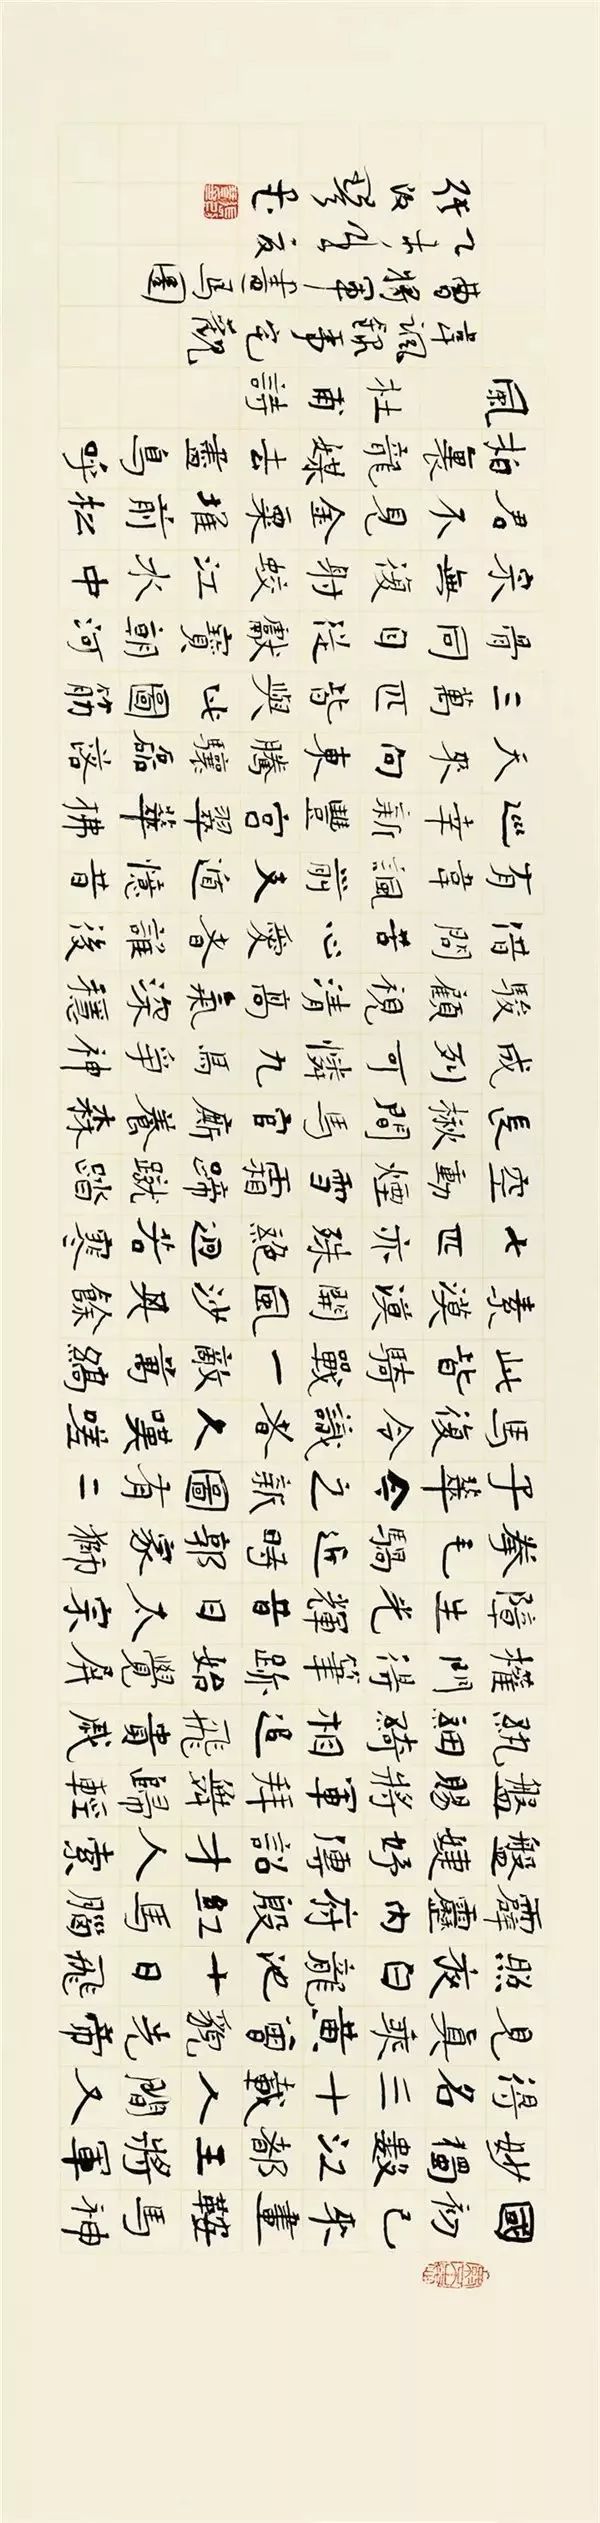 國初已來畫鞍馬神
妙獨數江都王將軍
得名三十載人間又
見真乘黃曾貌先帝
照夜白龍池十日飛
霹靂內府殷紅馬腦
盤婕妤傳詔才人索
盤賜將軍拜舞歸輕
紈細綺相追飛貴戚
權門得筆跡始覺屏
障生光輝昔日太宗
拳毛騧近時郭家獅
子華今之新圖有二
馬復令識者久嘆嗟
此皆騎戰一敵萬縞
素漠漠開風沙其餘
七匹亦殊絕迥若寒
空動煙雪霜蹄蹴踏
長楸間馬官廝養森
成列可憐九馬爭神
駿顧視清高氣深穩
借問苦心愛者誰後
有韋諷前支遁憶昔
巡幸新豐宮翠華拂
天來向東騰驤磊落
三萬匹皆與此圖筋
骨同自從獻寶朝河
宗無復射蛟江水中
君不見金粟堆前松
柏裏龍媒去盡鳥呼
風 杜甫詩
韋諷錄事宅觀
曹將軍畫馬圖
乙未年夏